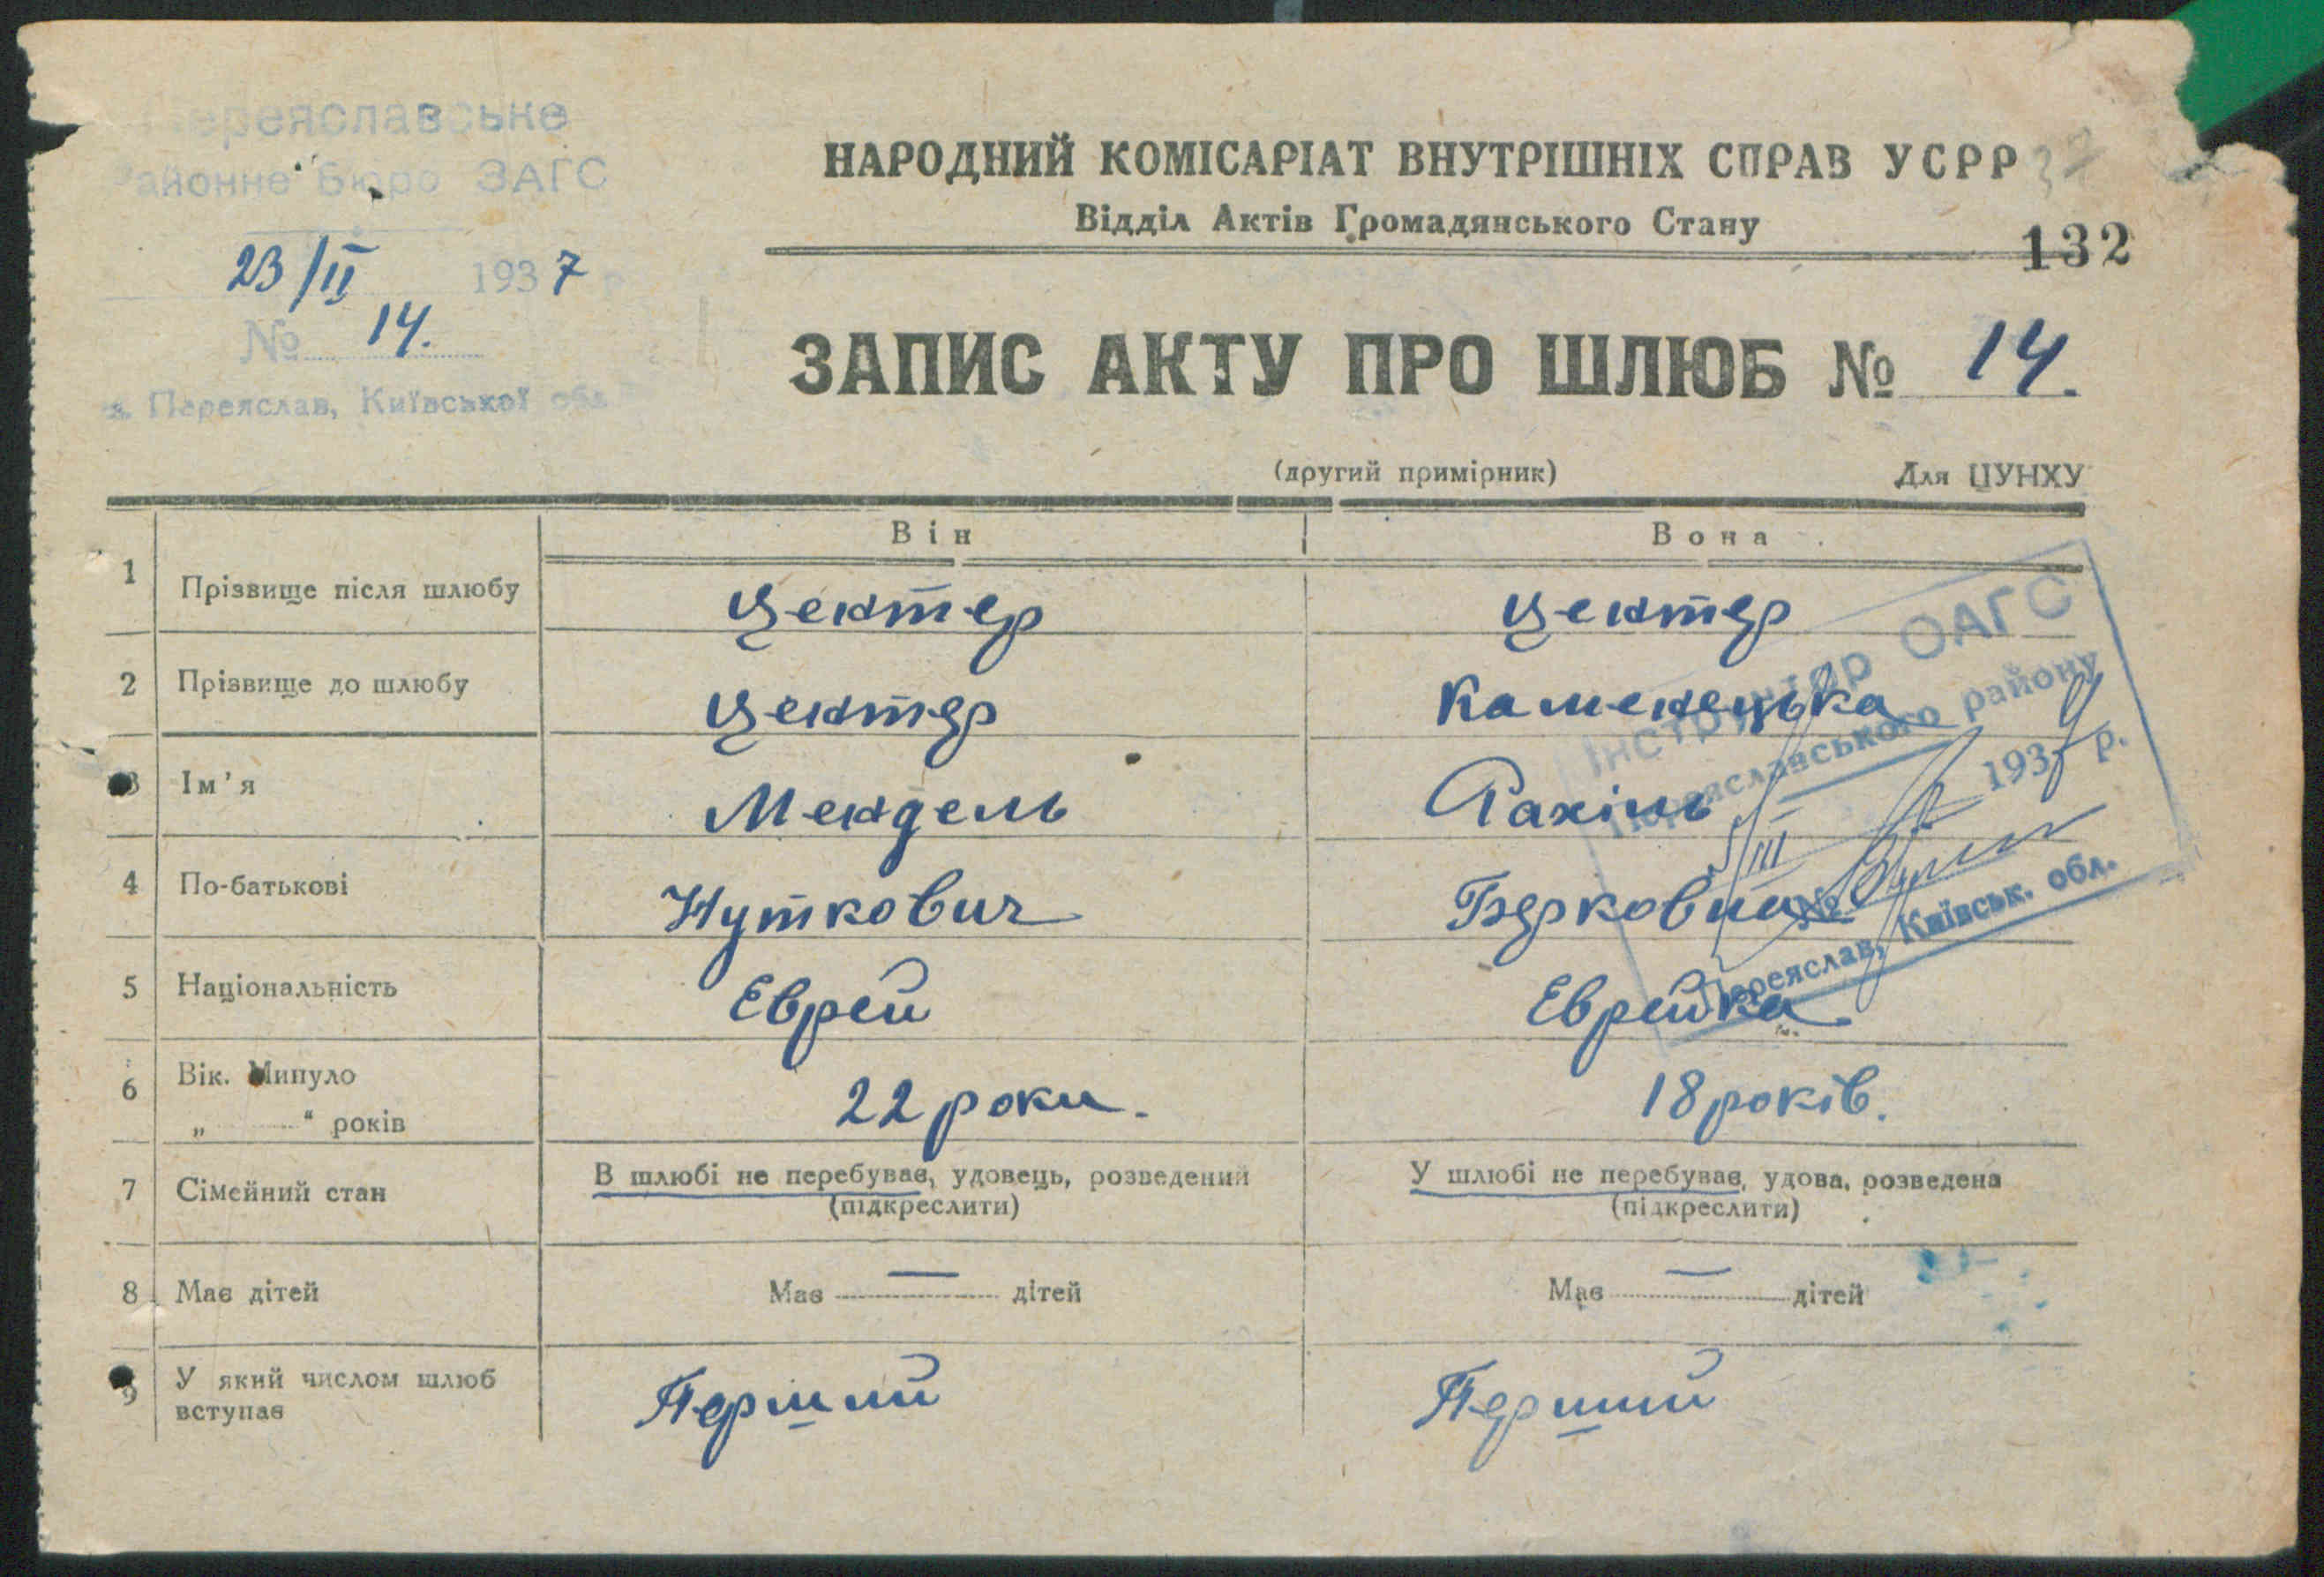 Переяславське
Районне Бюро ЗАГС
23/II 1937 р
№ 14.
м. Переяслав, Київської обл.
НАРОДНИЙ КОМІСАРІАТ ВНУТРІШНІХ СПРАВ УСРР
Відділ Актів Громадянського Стану
132
ЗАПИС АКТУ ПРО ШЛЮБ № 14.
(другий примірник) Для ЦУНХУ
Він Вона
1 Прізвище після шлюбу Центер Центер
2 Прізвище до шлюбу Центер Каменецька
3 Ім'я Мендель Рахіль
4 По-батькові Нуткович
5 Національність Еврей Еврейка
6 Вік. Минуло
„ “ років 22 роки. 18 років.
7 Сімейний стан В шлюбі не перебував, удовець, розведений У шлюбі не перебував, удова, розведена
(підкреслити) (підкреслити)
8 Має дітей Має — дітей Має — дітей
9 У який числом шлюб
вступає Перший Перший
Інструктор ОАГС
Переяславського району
III 193 р.
№
Переяслав, Київськ. обл.